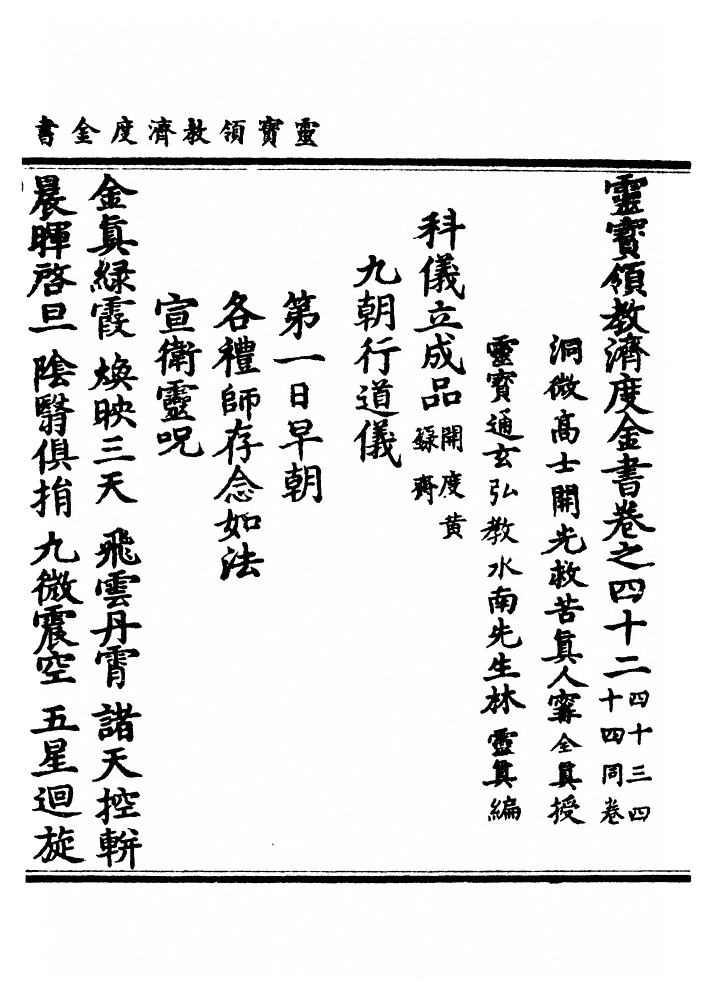 靈寶領教濟度金書
靈寶領教濟度金書卷之四十二四十三四十四同卷
洞微高士開光救苦眞人甯全眞授
靈寶通玄弘教水南先生林靈眞編
科儀立成品開度黃籙齊
九朝行道儀
第一日早朝
各禮師存念如法
宣衛靈呪
金眞綠霞 煥映三天 飛雲丹霄 諸天控輧
晨暉啓旦 陰翳俱捐 九微震空 五星迴旋